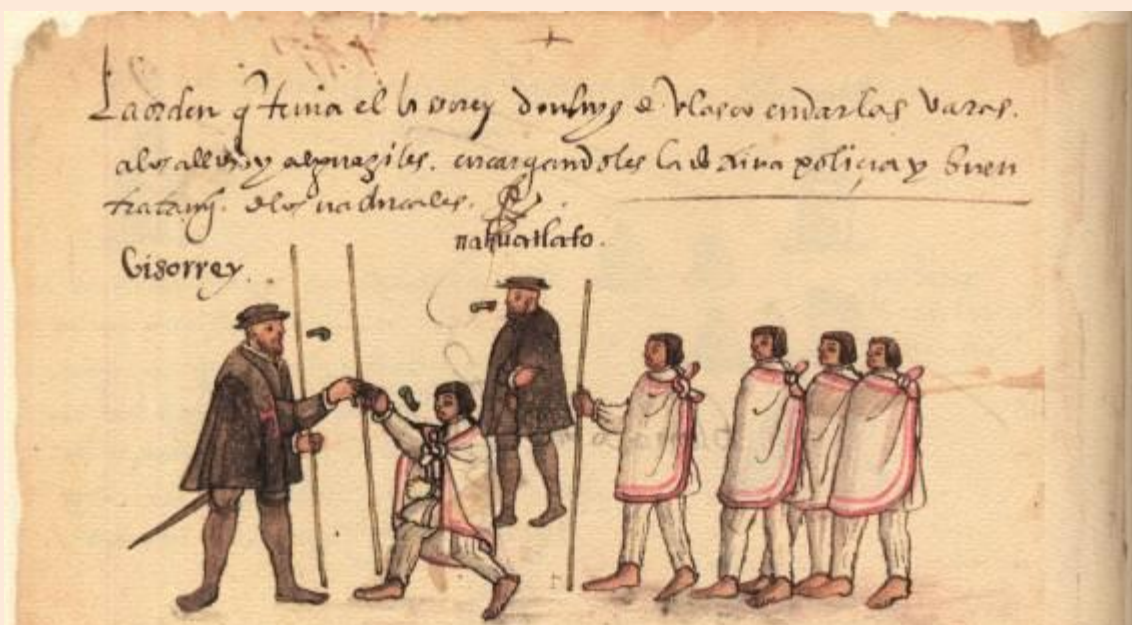 La orden q̃ tenia el bisorey don luys de Velasco en dar las varas.
a los alldes y alguaziles. encargandoles la doctrina policia y buen
tratamy. de los naturales.
nahuatlato.
Bisorrey.